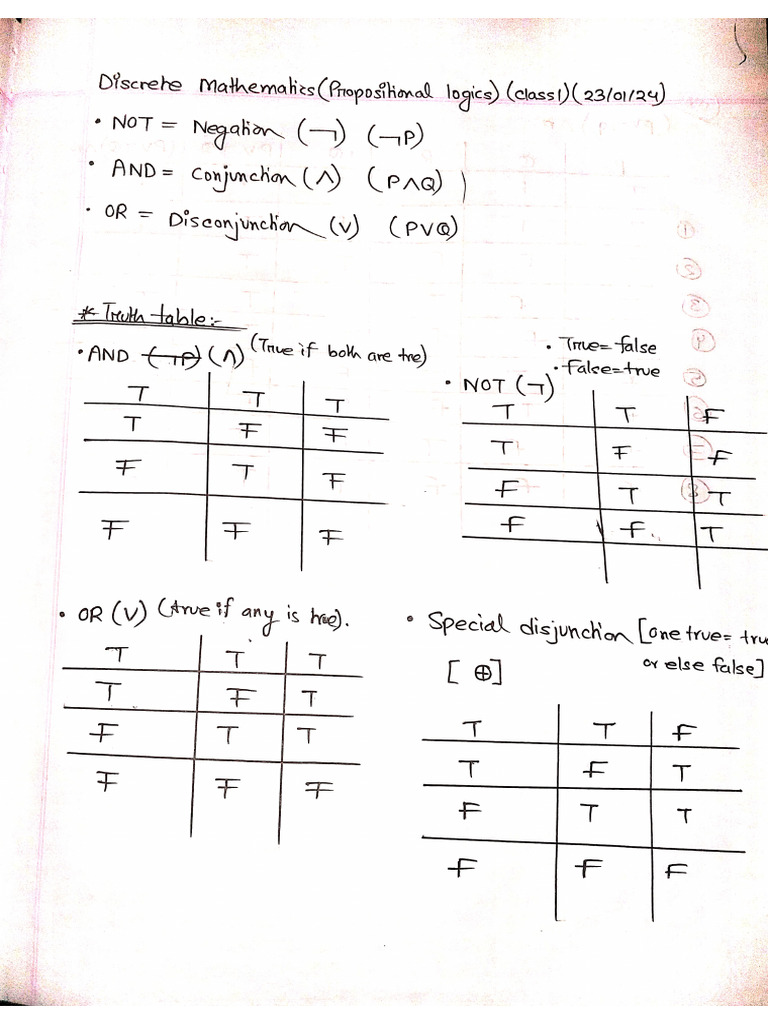 Discrete Mathematics (Propositional logics) (class1) (23/01/24)
• NOT = Negation (¬) (¬P)
• AND = Conjunction (∧) (P∧Q)
• OR = Disconjunction (V) (PVQ)
* Truth table:-
• AND (¬P) (∧) (True if both are tre)
T T T
T F F
F T F
F F F
• True = false
• False = true
• NOT (¬)
T T F
T F F
F T T
F F T
• OR (V) (true if any is true).
T T T
T F T
F T T
F F F
• Special disjunction [one true = tru
or else false]
[ ⊕ ]
T T F
T F T
F T T
F F F